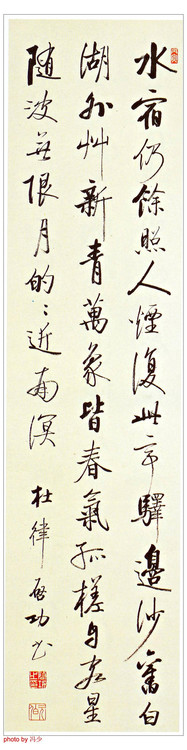 水宿仍餘照人煙復此亭驛邊沙舊白
湖外艸新青萬象皆春氣孤槎自客星
随波無限月的〻近南溟 杜律 啓功书
photo by 冯少